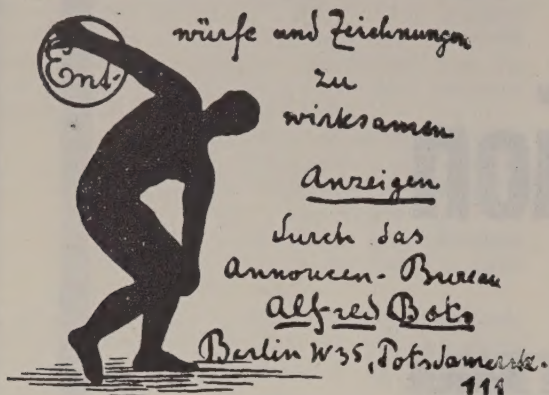 Ent-
würfe und Zeichnungen
zu
wirksamen
Anzeigen
durch das
Annoncen-Bureau
Alfred
Berlin W35, Potsdamerstr.
111